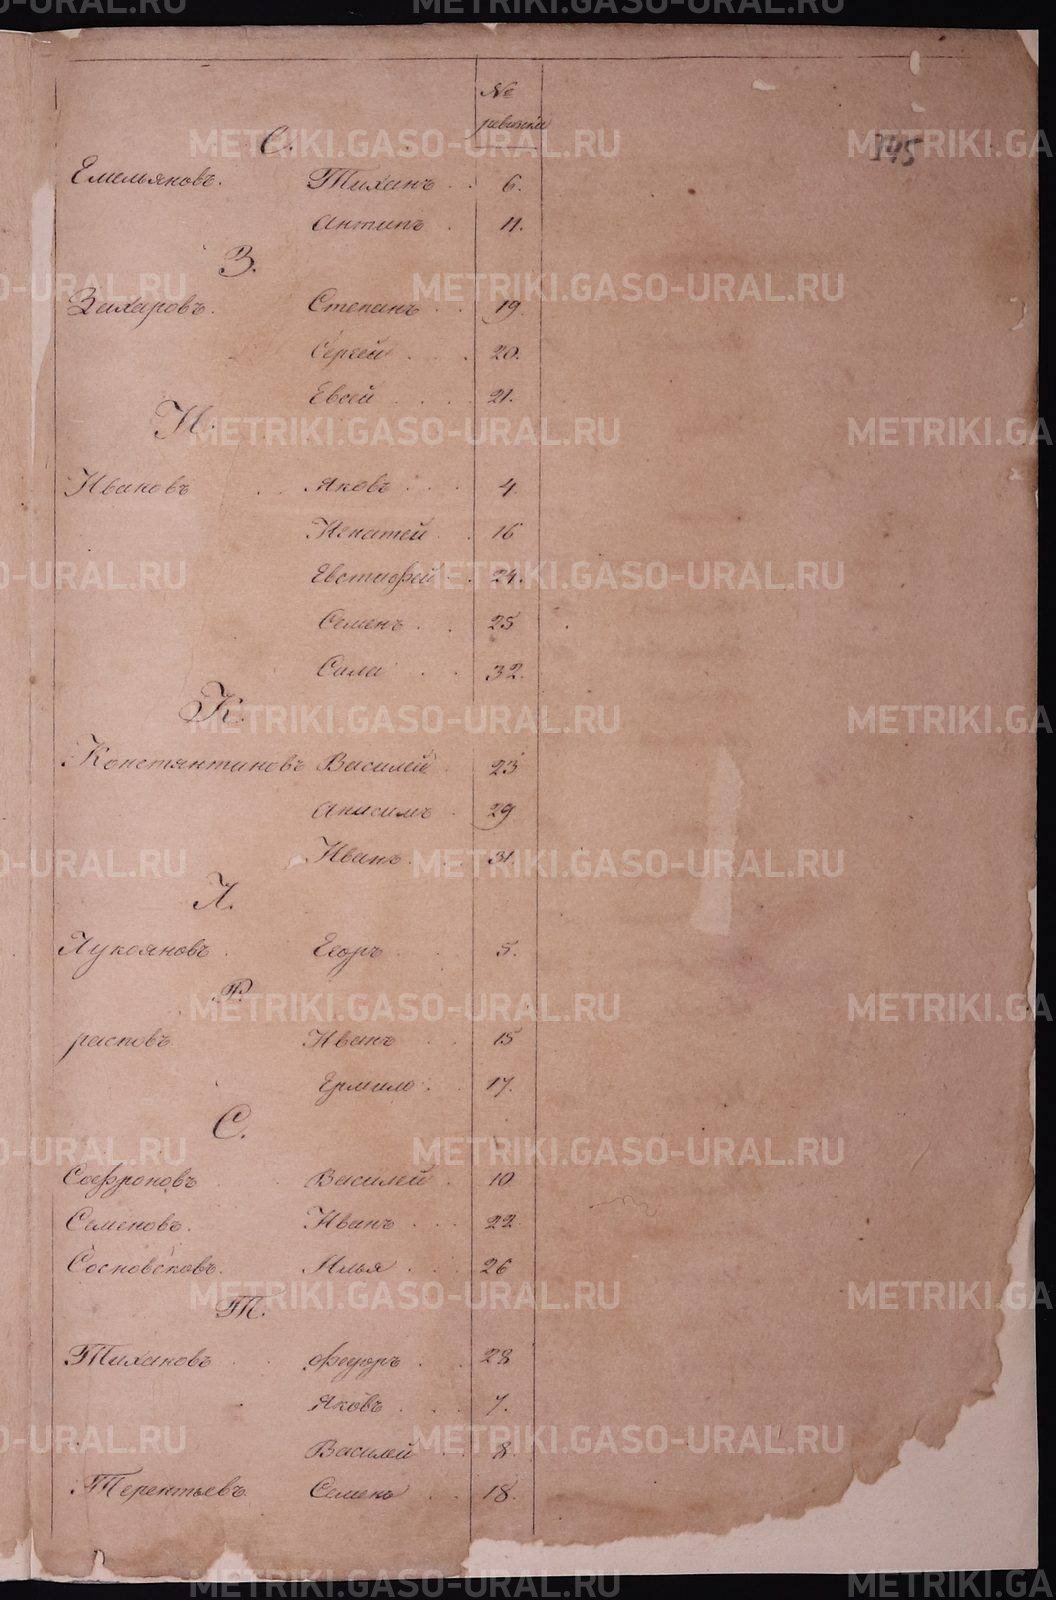 №
ревизски
145
Е.
Емельяновъ. Тиханъ 6.
Антипъ 11.
З.
Захаровъ. Степанъ 19.
Сергей 20.
Евсей 21.
И.
Ивановъ Яковъ 4
Игнатей 16
Евстифей 24.
Семенъ 25
Сала 32.
К.
Констянтиновъ Василей 23
Анисимъ 29
Иванъ 31
Л.
Лукояновъ Егоръ 5.
Р.
распопъ Иванъ 15
Ермило 17.
С.
Софроновъ Василей 10
Семеновъ. Иванъ 22
Сосновсковъ. Илья 26
Т.
Тихановъ Федоръ 28
Яковъ 7.
Василей 8.
Терентьевъ Семенъ 18.
METRIKI.GASO-URAL.RU